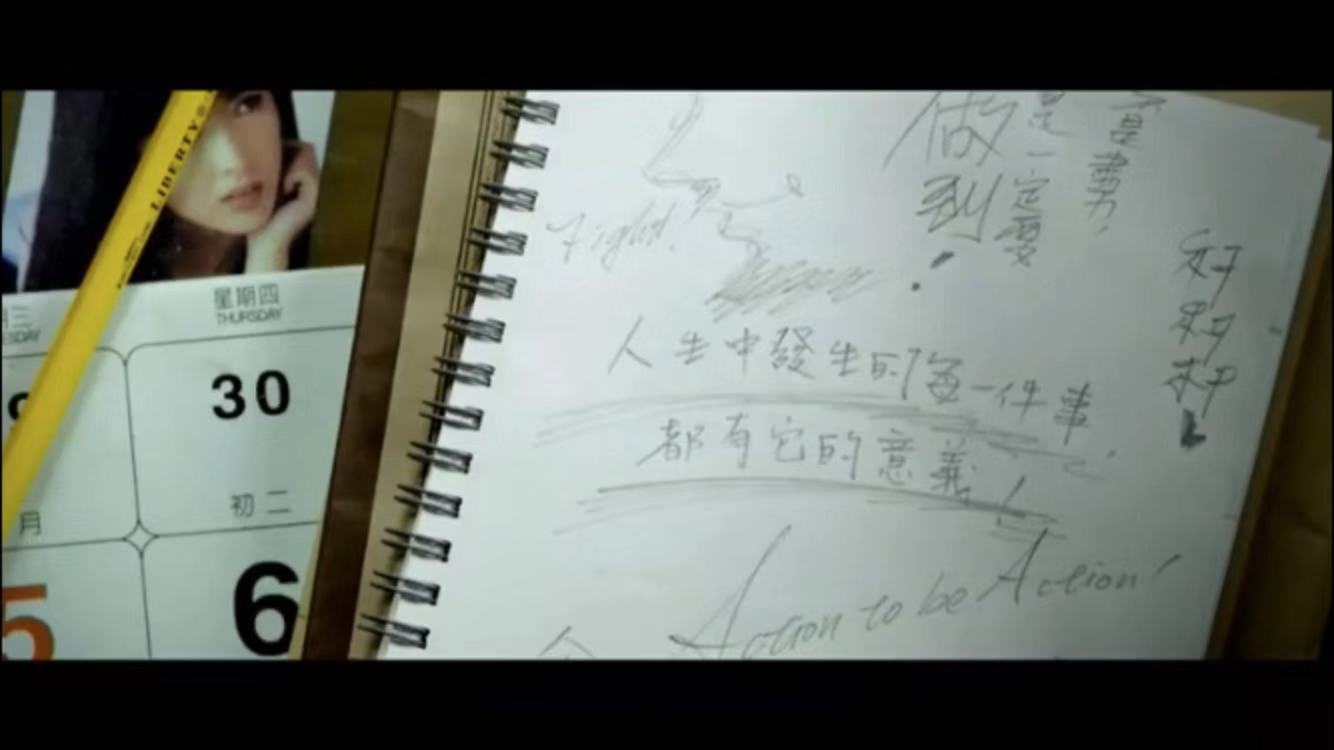 LIBERTY
星期四
THURSDAY
30
初二
月
5
6
Fight!
盡力,
是一定要
做到!
好
好
人生中發生的每一件事
都有它的意義!
Action to be Action!